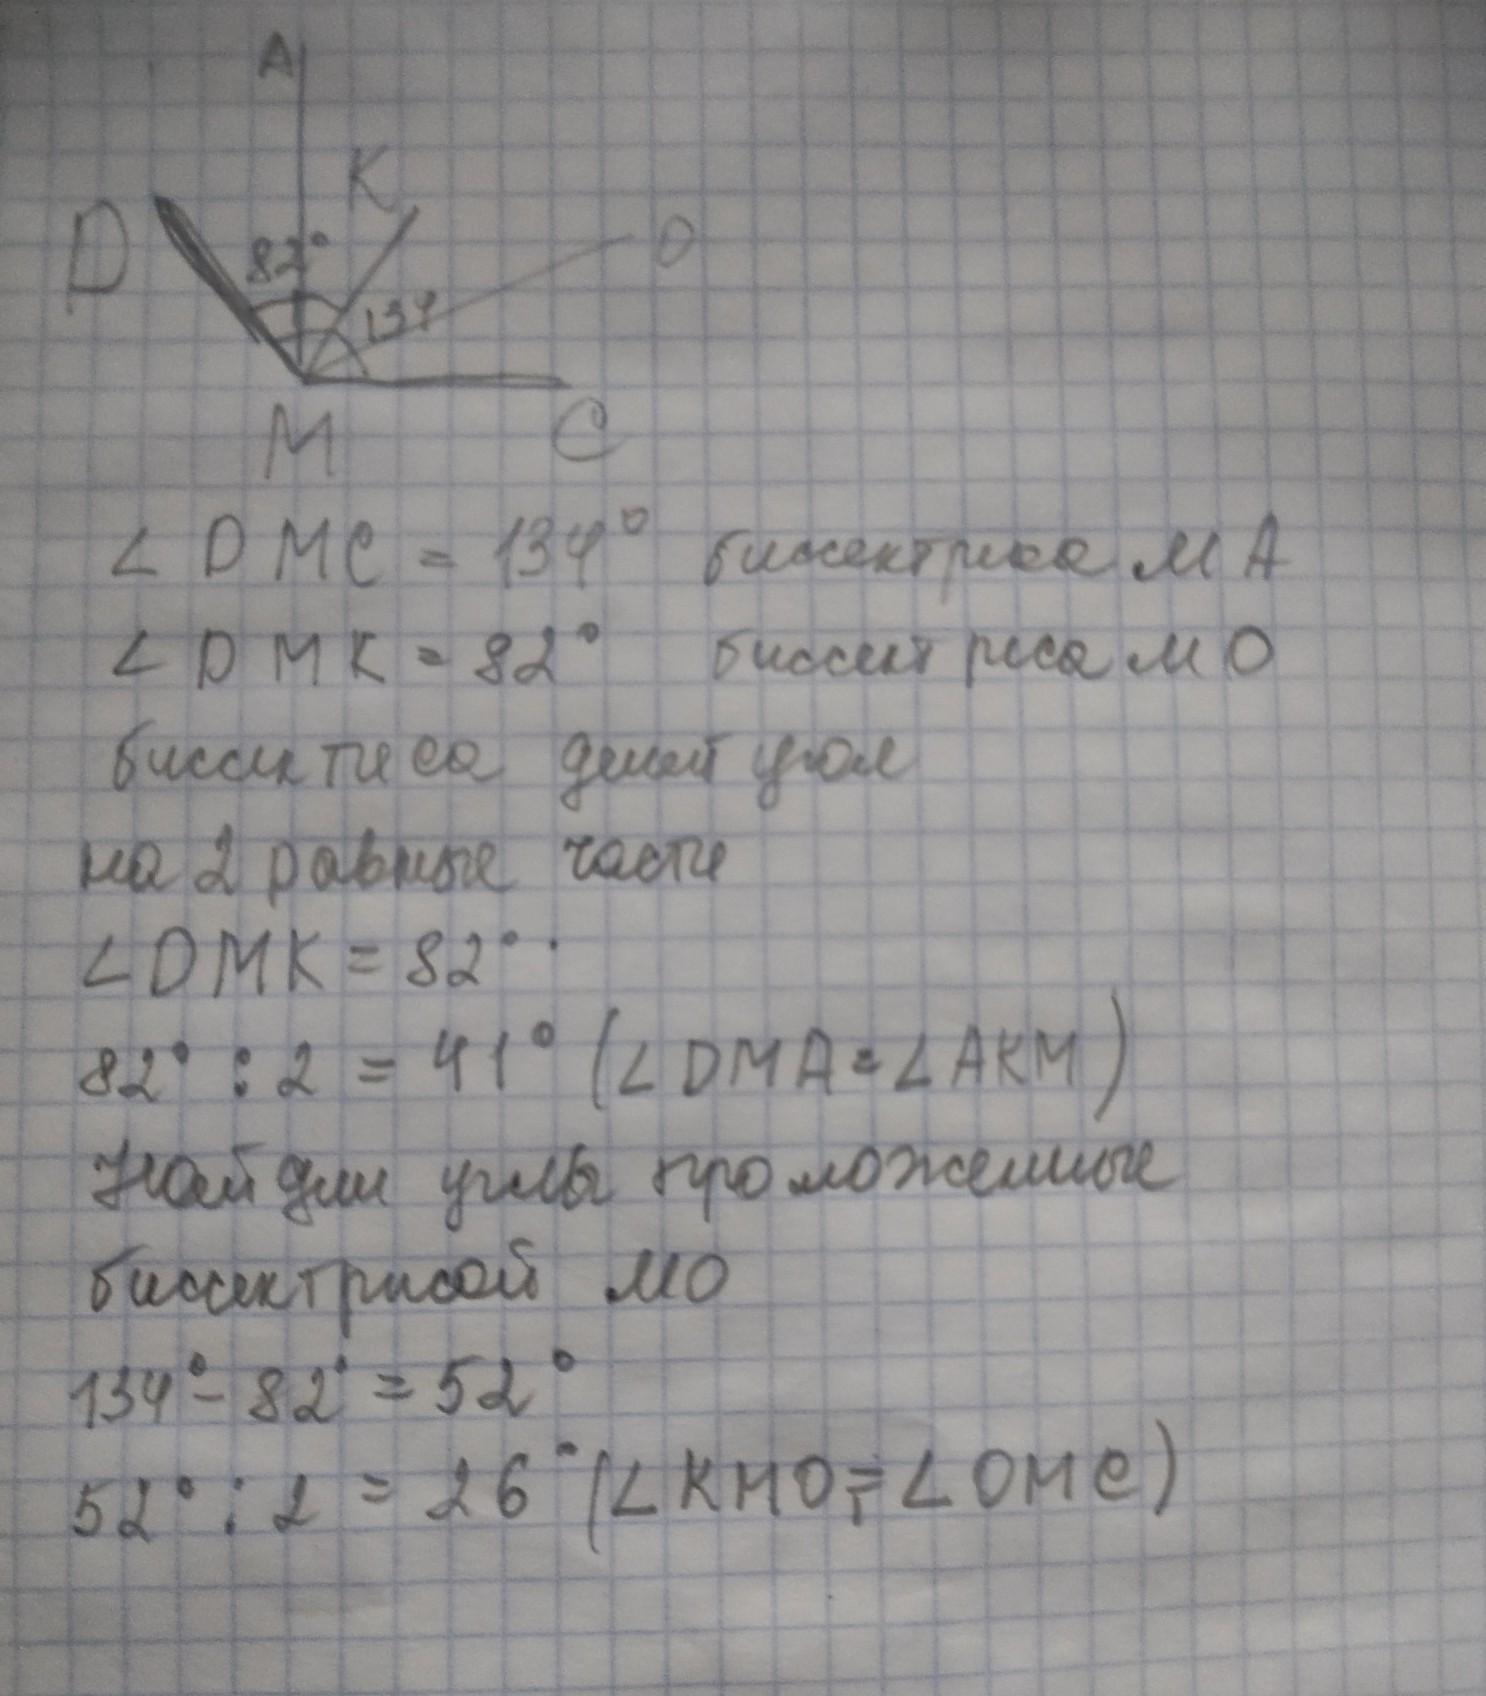 A
K
D
82°
O
134
M
C
∠ DMC = 134° биссектриса МА
∠ DMK = 82° биссектриса МО
биссектиса делит угол
на 2 равные части
∠DMK = 82°
82° : 2 = 41° (∠DMA = ∠AKM)
Найдем углы проложенные
биссектрисой МО
134° - 82° = 52°
52° : 2 = 26° (∠KMO = ∠OMC)